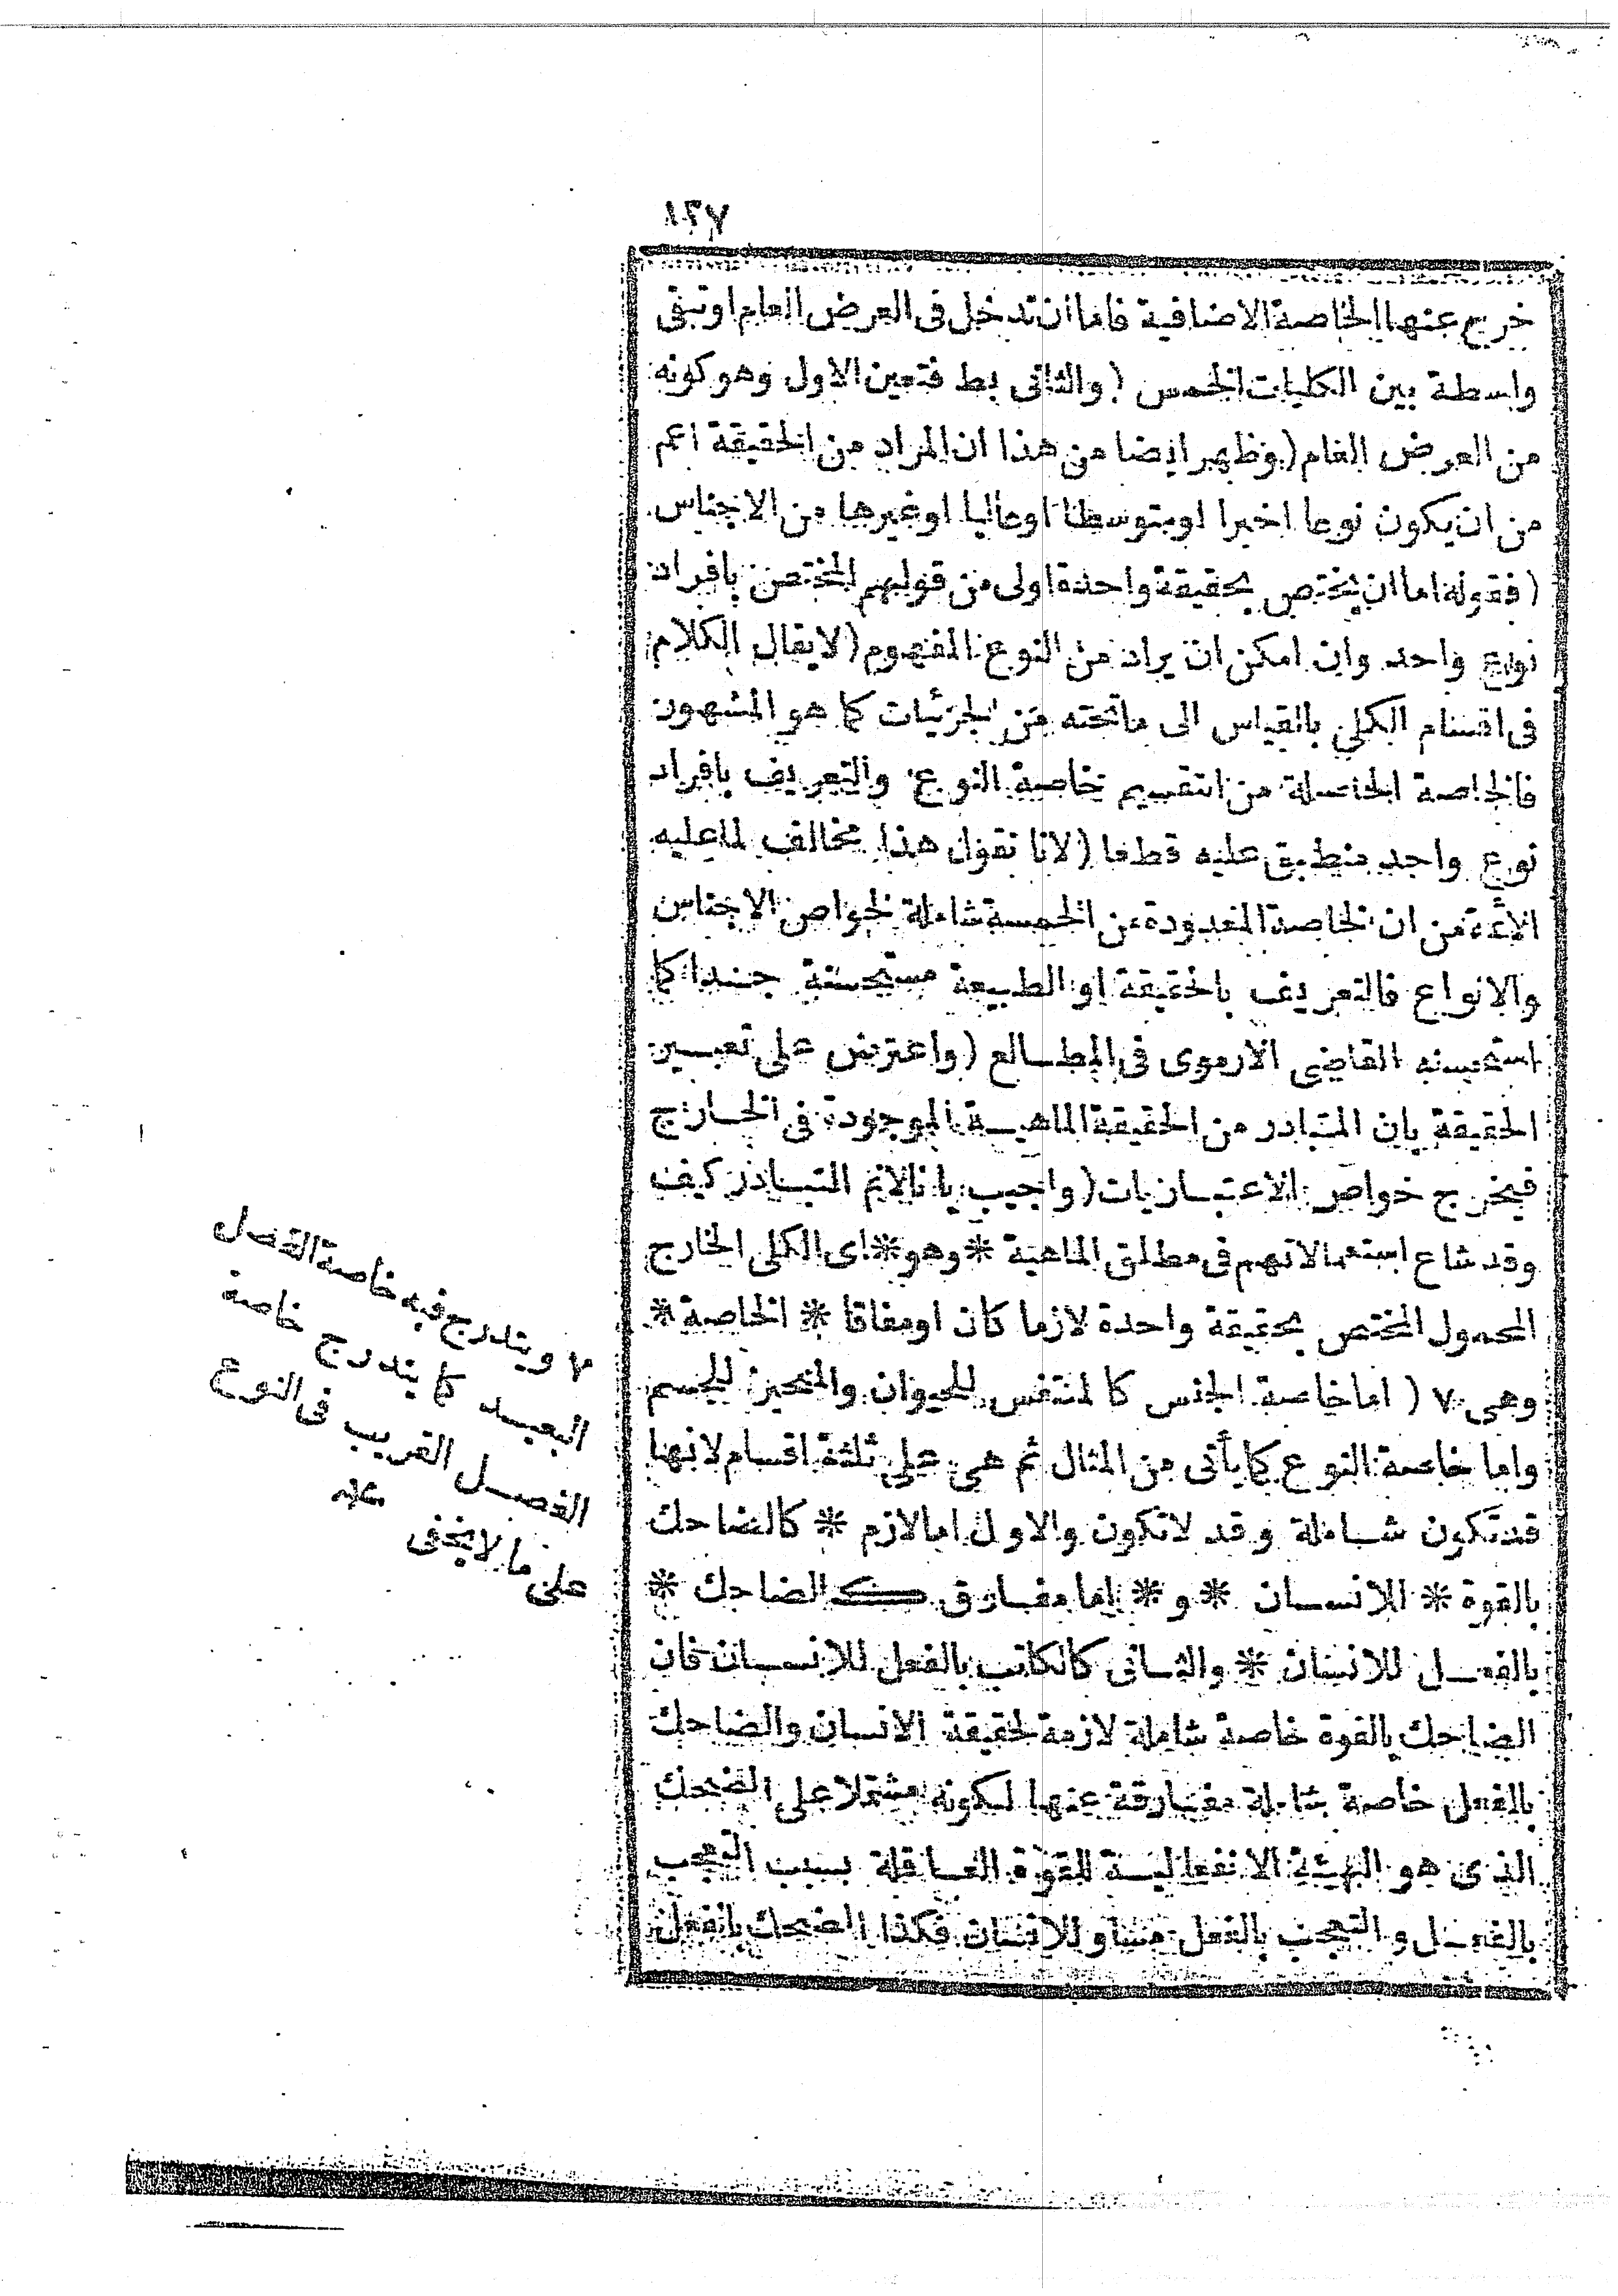 ١٢٧
خرج عنها الخاصة الاضافية فاما ان تدخل فى العرض العام او تبقى
واسطة بين الكليات الخمس ( والثانى بط فتعين الاول وهو كونه
من العرض العام ( وظهر ايضا من هذا ان المراد من الحقيقة اعم
من ان يكون نوعا اخيرا او متوسطا او عاليا او غيرها من الاجناس
( فقوله اما ان يختص بحقيقة واحدة اولى من قولهم المختص بافراد
نوع واحد وان امكن ان يراد من النوع المفهوم ( لا يقال الكلام
فى اقسام الكلى بالقياس الى ما تحته من الجزئيات كما هو المشهور
فالخاصة الحاصلة من التقسيم خاصة النوع والتعريف بافراد
نوع واحد منطبق عليه قطعا ( لانا نقول هذا مخالف لما عليه
الائمة من ان الخاصة المعدودة من الخمسة شاملة لخواص الاجناس
والانواع فالتعريف بالحقيقة او الطبيعة مستحسنة جدا كما
استحسنه القاضى الارموى فى المطالع ( واعترض على تعبير
الحقيقة بان المتبادر من الحقيقة الماهية الموجودة فى الخارج
فيخرج خواص الاعتباريات ( واجيب بانا لانم التبادر كيف
وقد شاع استعمالاتهم فى مطلق الماهية * وهو * اى الكلى الخارج
المحمول المختص بحقيقة واحدة لازما كان او مفاقا * الخاصة *
وهى ٧ ( اما خاصة الجنس كالمتنفس للحيوان والمتحيز للجسم
واما خاصة النوع كما يأتى من المثال ثم هى على ثلثة اقسام لانها
قد تكون شاملة وقد لا تكون والاول اما لازم * كالضاحك
بالقوة * للانسان * و * اما مفارق كالضاحك *
بالفعل للانسان * والثانى كالكاتب بالفعل للانسان فان
الضاحك بالقوة خاصة شاملة لازمة لحقيقة الانسان والضاحك
بالفعل خاصة شاملة مفارقة عنها لكونه مشتملا على الضحك
الذى هو الهيئة الانفعالية للقوة العاقلة بسبب التعجب
بالفعل والتعجب بالفعل مساو للانسان فكذا الضحك بالفعل
٧ ويندرج فيه خاصة الفصل
البعيد كما يندرج خاصة
الفصل القريب فى النوع
على ما لا يخفى